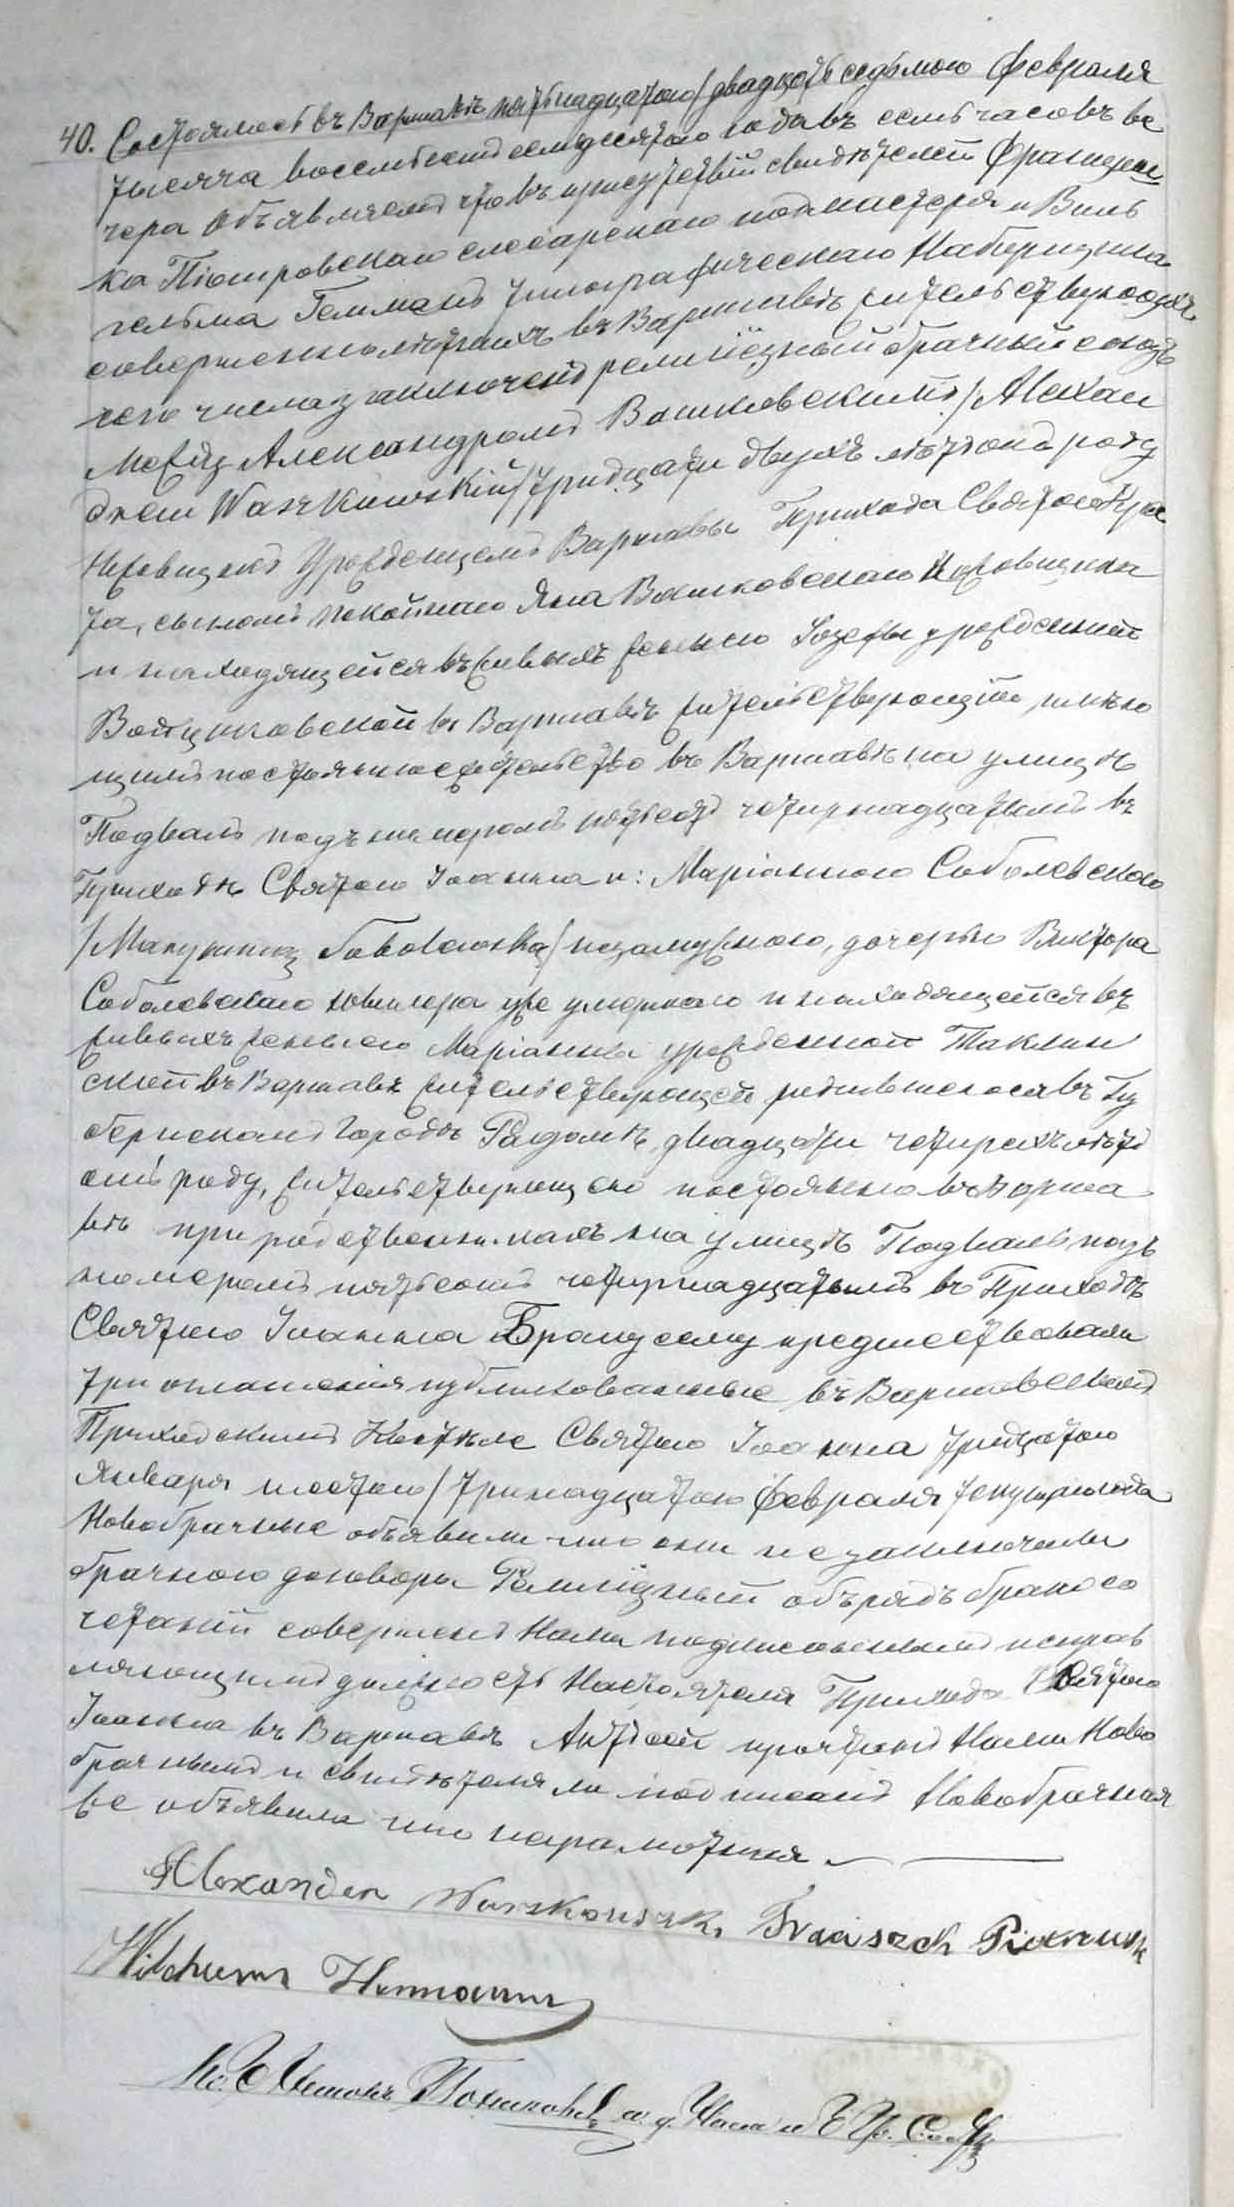 40. Состоялось въ Варшавѣ пятьнадцатого/двадцать седьмого Февраля
тысяча восемьсотъ семдесятого года въ семь часовъ ве
чера Объявляемъ что въ присутствіи свидѣтелей Франциш
ка Піотровскаго слесарскаго подмастеря и Виль
гельма Геммана типографическаго Наборщика
совершеннолѣтнихъ въ Варшавѣ жительствующихъ
сего числа заключенъ религіозный брачный союзъ
Между Александромъ Вашковскимъ/Alexan
drem Waszkowskim/тридцати двухъ лѣтъ отъ роду
Ножовщикъ Урожденцемъ Варшавы Прихода Святого Кре
ста, сыномъ покойнаго Яна Вашковскаго Ножовщика
и находящейся въ живыхъ женою Іозефы урожденной
Войцинковской въ Варшавѣ жительствующей, имѣю
щимъ постоянное жительство въ Варшавѣ на улицѣ
Подваль подъ номеромъ пятьсотъ четирнадцатымъ въ
Приходѣ Святого Іоанна и: Маріанною Соболевскою
/Maryanną Sobolewską/незамужною, дочерью Виктора
Соболевскаго ювилера уже умершаго и находящейся въ
живыхъ женою Маріанны урожденной Таклин
ской въ Варшавѣ жительствующей родившеюся въ Гу
бернскомъ Городѣ Радомѣ, двадцати четирехъ лѣтъ
отъ роду, жительствующею постоянно въ Варша
вѣ при родственникахъ на улицѣ Подваль подъ
номеромъ пятьсотъ четирнадцатымъ въ Приходѣ
Святого Іоанна Браку сему предшествовали
три оглашенія публикованные въ Варшавскомъ
Приходскимъ Костѣле Святого Іоанна тридцатого
Января шостого/тринадцатого Февраля текущаго года
Новобрачные объявили что они не заключали
брачного договора Религіозный обърядъ бракосо
четаній совершенъ Нами подписаннымъ исправ
ляющимъ должность Настоятеля Прихода Святого
Іоанна въ Варшавѣ Актъ сей прочтенъ Нами Ново
брачнымъ и свидѣтелями подписанъ Новобрачная
же объявила что неграмотная
Alexander Waszkowski, Franiszek Piotrowsk
Wilchelm Hemann
Кс. Шимонъ Пониковскі и. д. Наст и Ч Гр. Сост